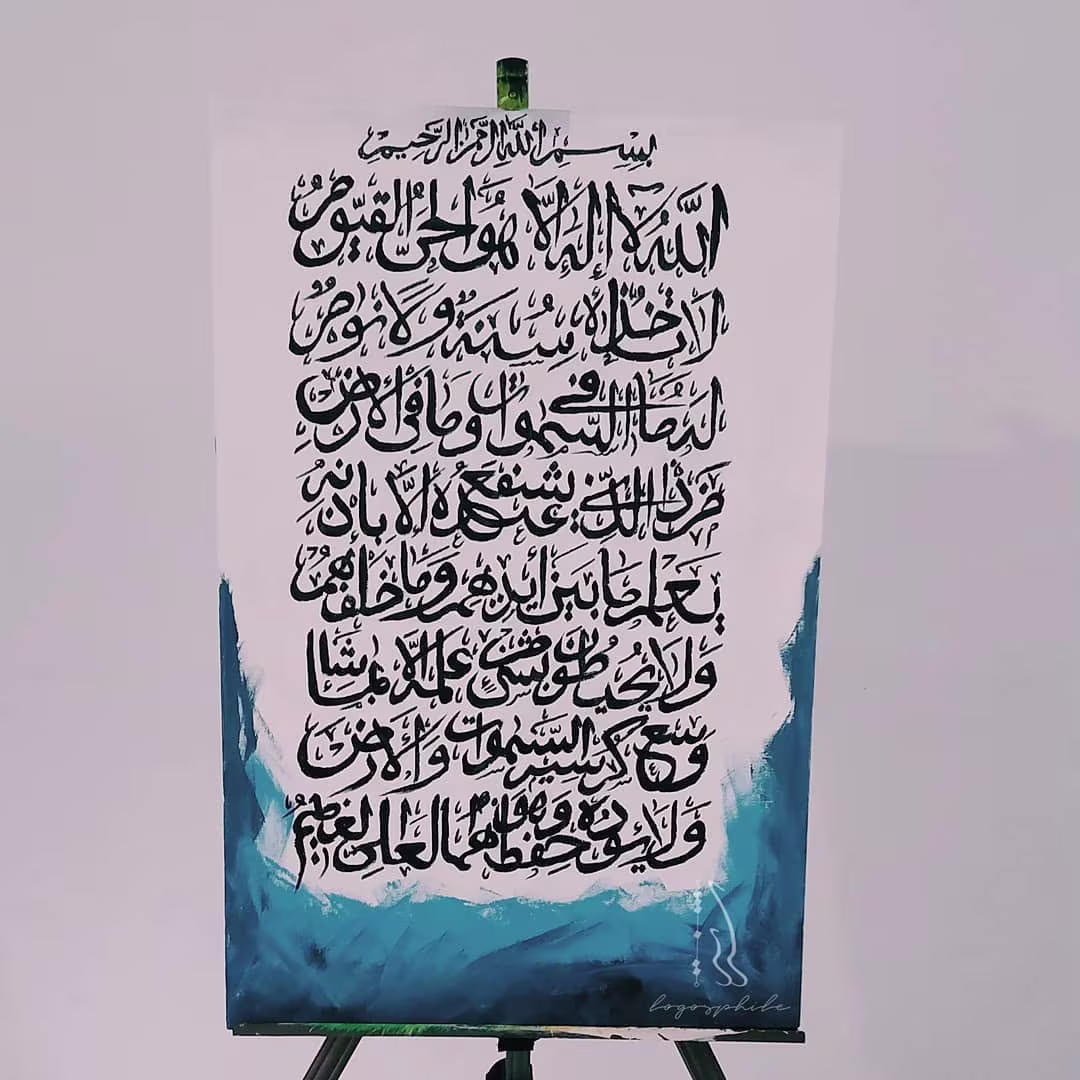 بِسْمِ ٱللَّهِ الرَّحْمَٰنِ الرَّحِيمِ
اللَّهُ لَا إِلَٰهَ إِلَّا هُوَ الْحَيُّ الْقَيُّومُ
لَا تَأْخُذُهُ سِنَةٌ وَلَا نَوْمٌ
لَهُ مَا فِي السَّمَوَاتِ وَمَا فِي الْأَرْضِ
مَنْ ذَا الَّذِي يَشْفَعُ عِنْدَهُ إِلَّا بِإِذْنِهِ
يَعْلَمُ مَا بَيْنَ أَيْدِيهِمْ وَمَا خَلْفَهُمْ
وَلَا يُحِيطُونَ بِشَيْءٍ مِنْ عِلْمِهِ إِلَّا بِمَا شَا
وَسِعَ كُرْسِيُّهُ السَّمَوَاتِ وَالْأَرْضَ
وَلَا يَئُودُهُ حِفْظُهُمَا وَهُوَ الْعَلِيُّ الْعَظِيمُ
logosphile